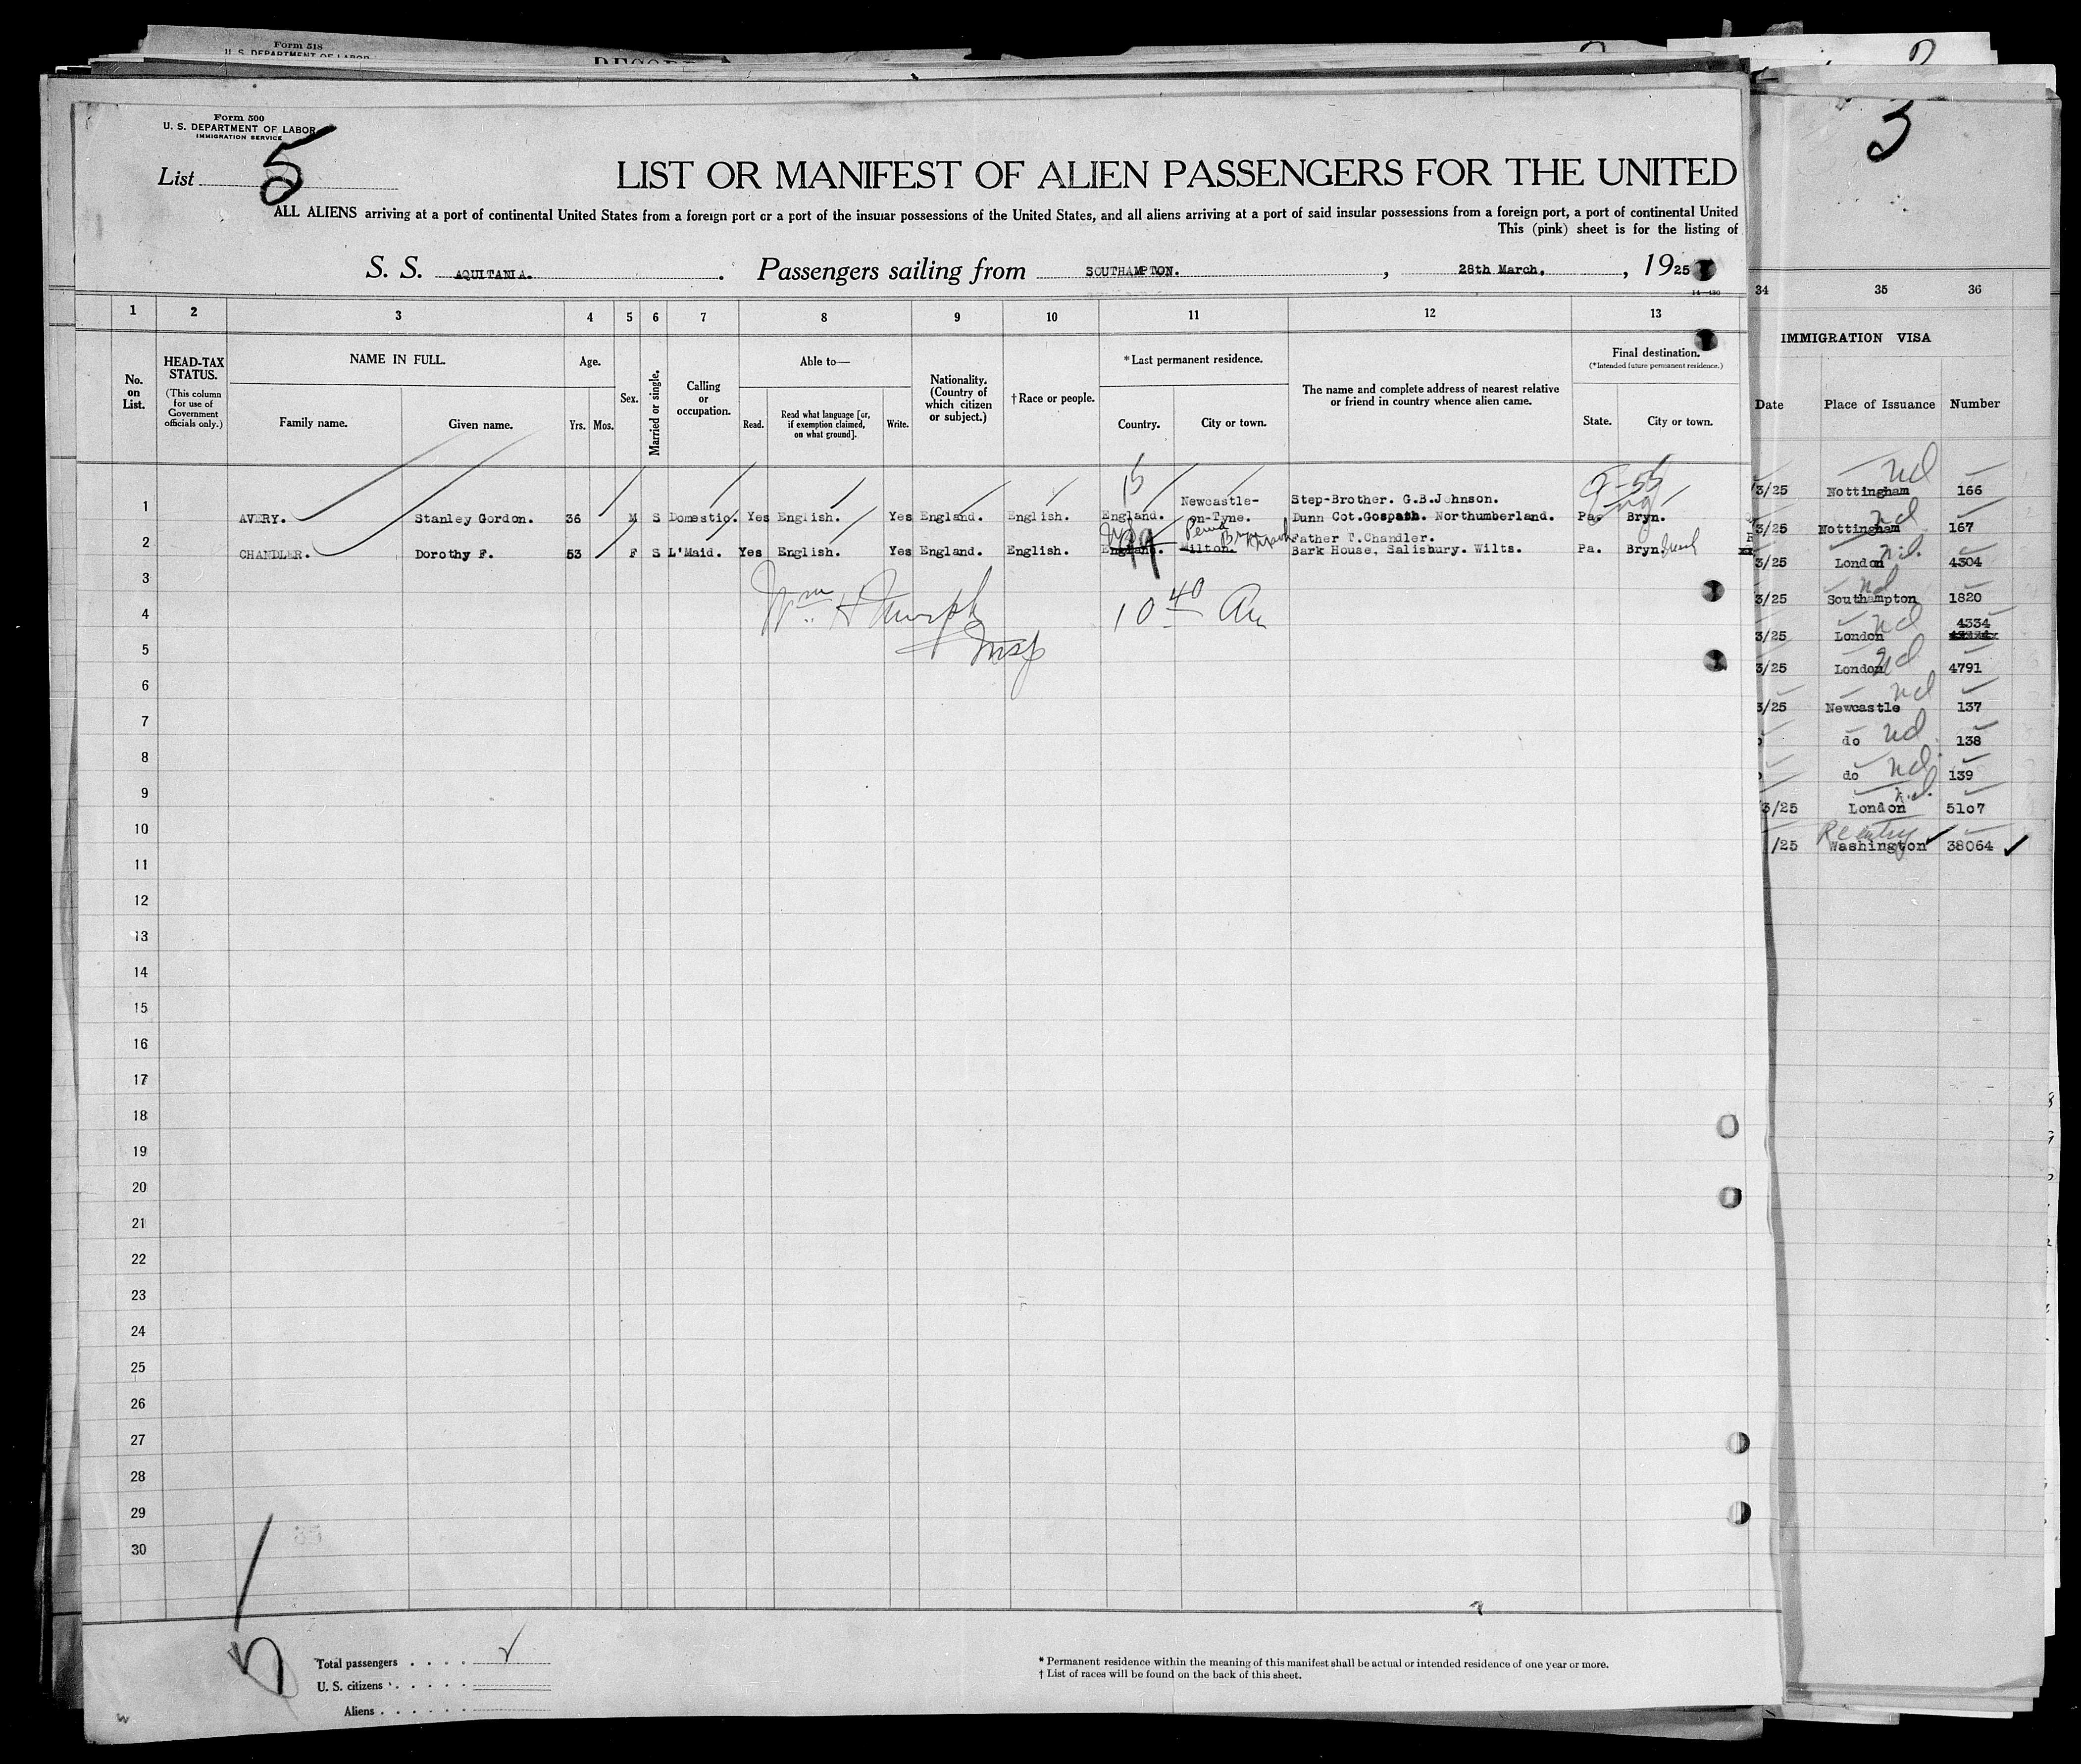 Form 518
U. S. DEPARTMENT OF LABOR
Form 500
U. S. DEPARTMENT OF LABOR
IMMIGRATION SERVICE
List 5
3
LIST OR MANIFEST OF ALIEN PASSENGERS FOR THE UNITED
ALL ALIENS arriving at a port of continental United States from a foreign port or a port of the insular possessions of the United States, and all aliens arriving at a port of said insular possessions from a foreign port, a port of continental United
This (pink) sheet is for the listing of
S. S. AQUITANIA. Passengers sailing from SOUTHAMPTON. , 28th March. , 1925
1 2 3 4 5 6 7 8 9 10 11 12 13
No. on List.
HEAD-TAX STATUS.
(This column for use of Government officials only.)
NAME IN FULL.
Family name. Given name.
Age.
Yrs. Mos.
Sex.
Married or single.
Calling or occupation.
Able to—
Read. Read what language [or, if exemption claimed, on what ground]. Write.
Nationality. (Country of which citizen or subject.)
†Race or people.
*Last permanent residence.
Country. City or town.
The name and complete address of nearest relative or friend in country whence alien came.
Final destination.
(*Intended future permanent residence.)
State. City or town.
1 AVERY. Stanley Gordon. 36 M S Domestic. Yes English. Yes England. English. England. Newcastle-on-Tyne. Step-Brother. G.B.Johnson.
Dunn Cot.Gospath. Northumberland. Pa. Bryn.
2 CHANDLER. Dorothy F. 53 F S L'Maid. Yes English. Yes England. English. England. Milton. Father T.Chandler.
Bark House, Salisbury. Wilts. Pa. Bryn.
Wm H Murphy
Insp
10 40 Am
3
4
5
6
7
8
9
10
11
12
13
14
15
16
17
18
19
20
21
22
23
24
25
26
27
28
29
30
Total passengers . . . .
U. S. citizens . . . . .
Aliens . . . . . .
* Permanent residence within the meaning of this manifest shall be actual or intended residence of one year or more.
† List of races will be found on the back of this sheet.
34 35 36
IMMIGRATION VISA
Date Place of Issuance Number
3/25 Nottingham 166
3/25 Nottingham 167
3/25 London 4304
3/25 Southampton 1820
4334
3/25 London
3/25 London 4791
3/25 Newcastle 137
do 138
do 139
3/25 London 5107
Reentry
/25 Washington 38064